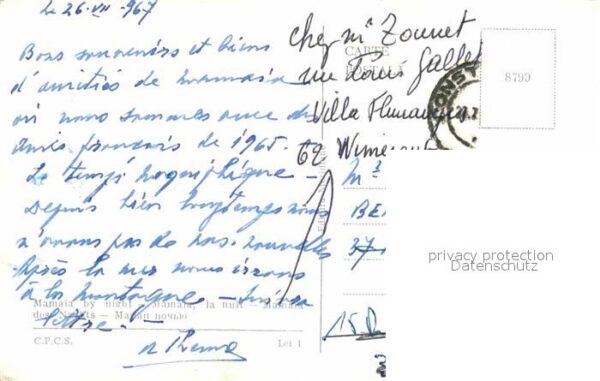 le 26-VII-967
Bons souvenirs et biens
d'amitiés de Mamaia
où nous sommes avec des
amis français de 1965.
Le temps magniphique –
Depuis bien longtemps nous
n'avons pas de vos nouvelles
Après la mer nous irons
à la montagne –
lettre! –
Chez Mr Zonnet
rue Louis Gallet
Villa
62
CARTE
POSTALĂ
8799
CONST
BE
37
15
privacy protection
Datenschutz
Mamaia by night – Mamaia, la nuit – Mamaia
des Nachts – Мамаи ночью
C.P.C.S.
Lei 1